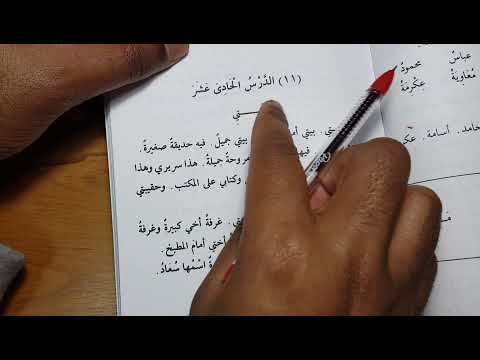 (١١) الدَّرْسُ الْحَادِىَ عَشَرَ
بيتي جميلٌ . فيه حديقةٌ صغيرةٌ .
جميلةٌ . هذا سريري وهذا
وكتابي على المكتبِ . وحقيبتي
غرفةُ أخي كبيرةٌ وغرفةُ
أختي أمامَ المطبخِ .
اسْمُها سُعَادُ .
عباسٌ محمودٌ
مُعَاوِيَةُ عِكْرِمَةُ
حامد . أسامة .